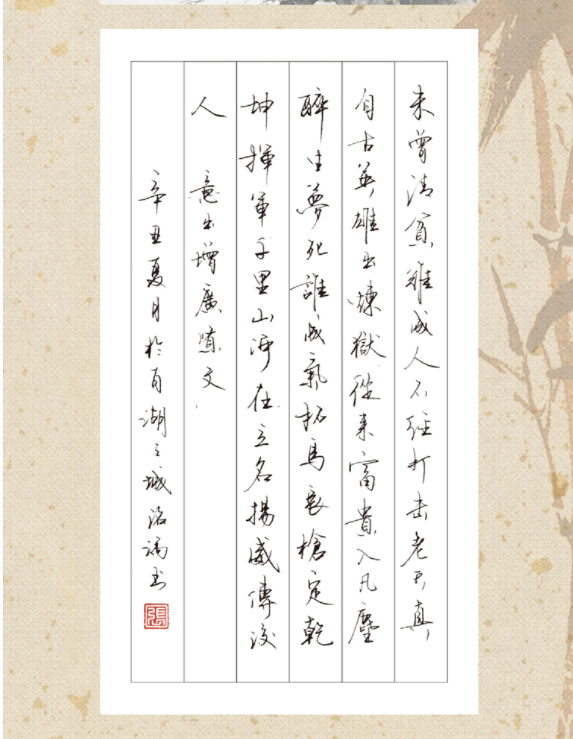 未曾清貧難成人不經打击老天真
自古英雄出煉獄從来富貴入凡塵
醉生夢死誰成氣拓馬長槍定乾
坤揮軍千里山河在立名揚威傳後
人 意出增廣賢文
辛丑夏月於百湖之城书
張